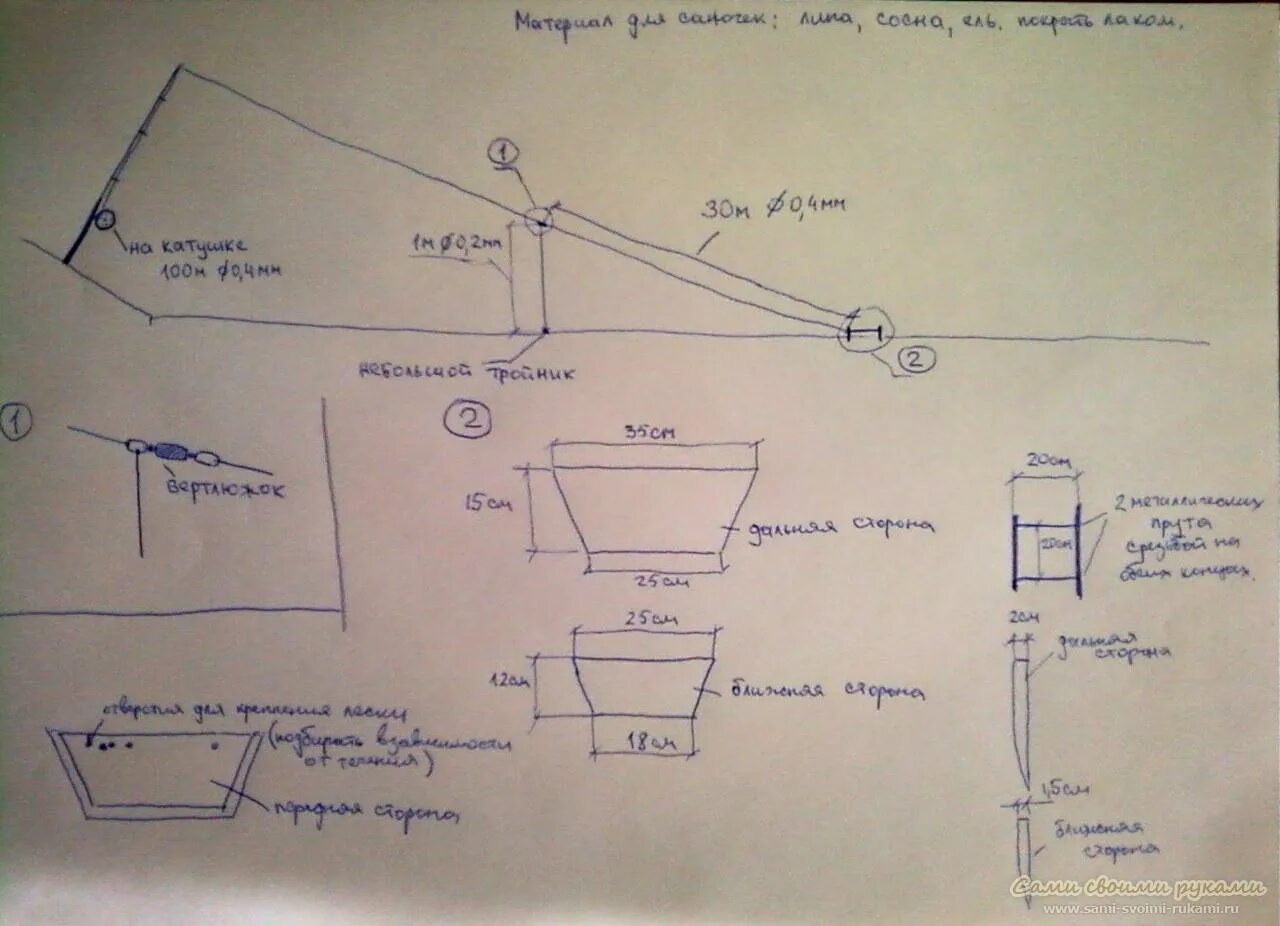 Материал для саночек: липа, сосна, ель. покрыть лаком.
1
30м ⌀0,4мм
на катушке
100м ⌀0,4мм
1м ⌀0,2мм
небольшой тройник
2
1
вертлюжок
2
35см
15см
дальняя сторона
25см
25см
12см
ближняя сторона
18см
20см
20см
2 металлических
прута
с резьбой на
обеих концах.
2см
дальняя
сторона
1,5см
ближняя
сторона
отверстия для крепления лески
(подбирать взависимости
от течения)
передняя сторона
Сами своими руками
www.sami-svoimi-rukami.ru